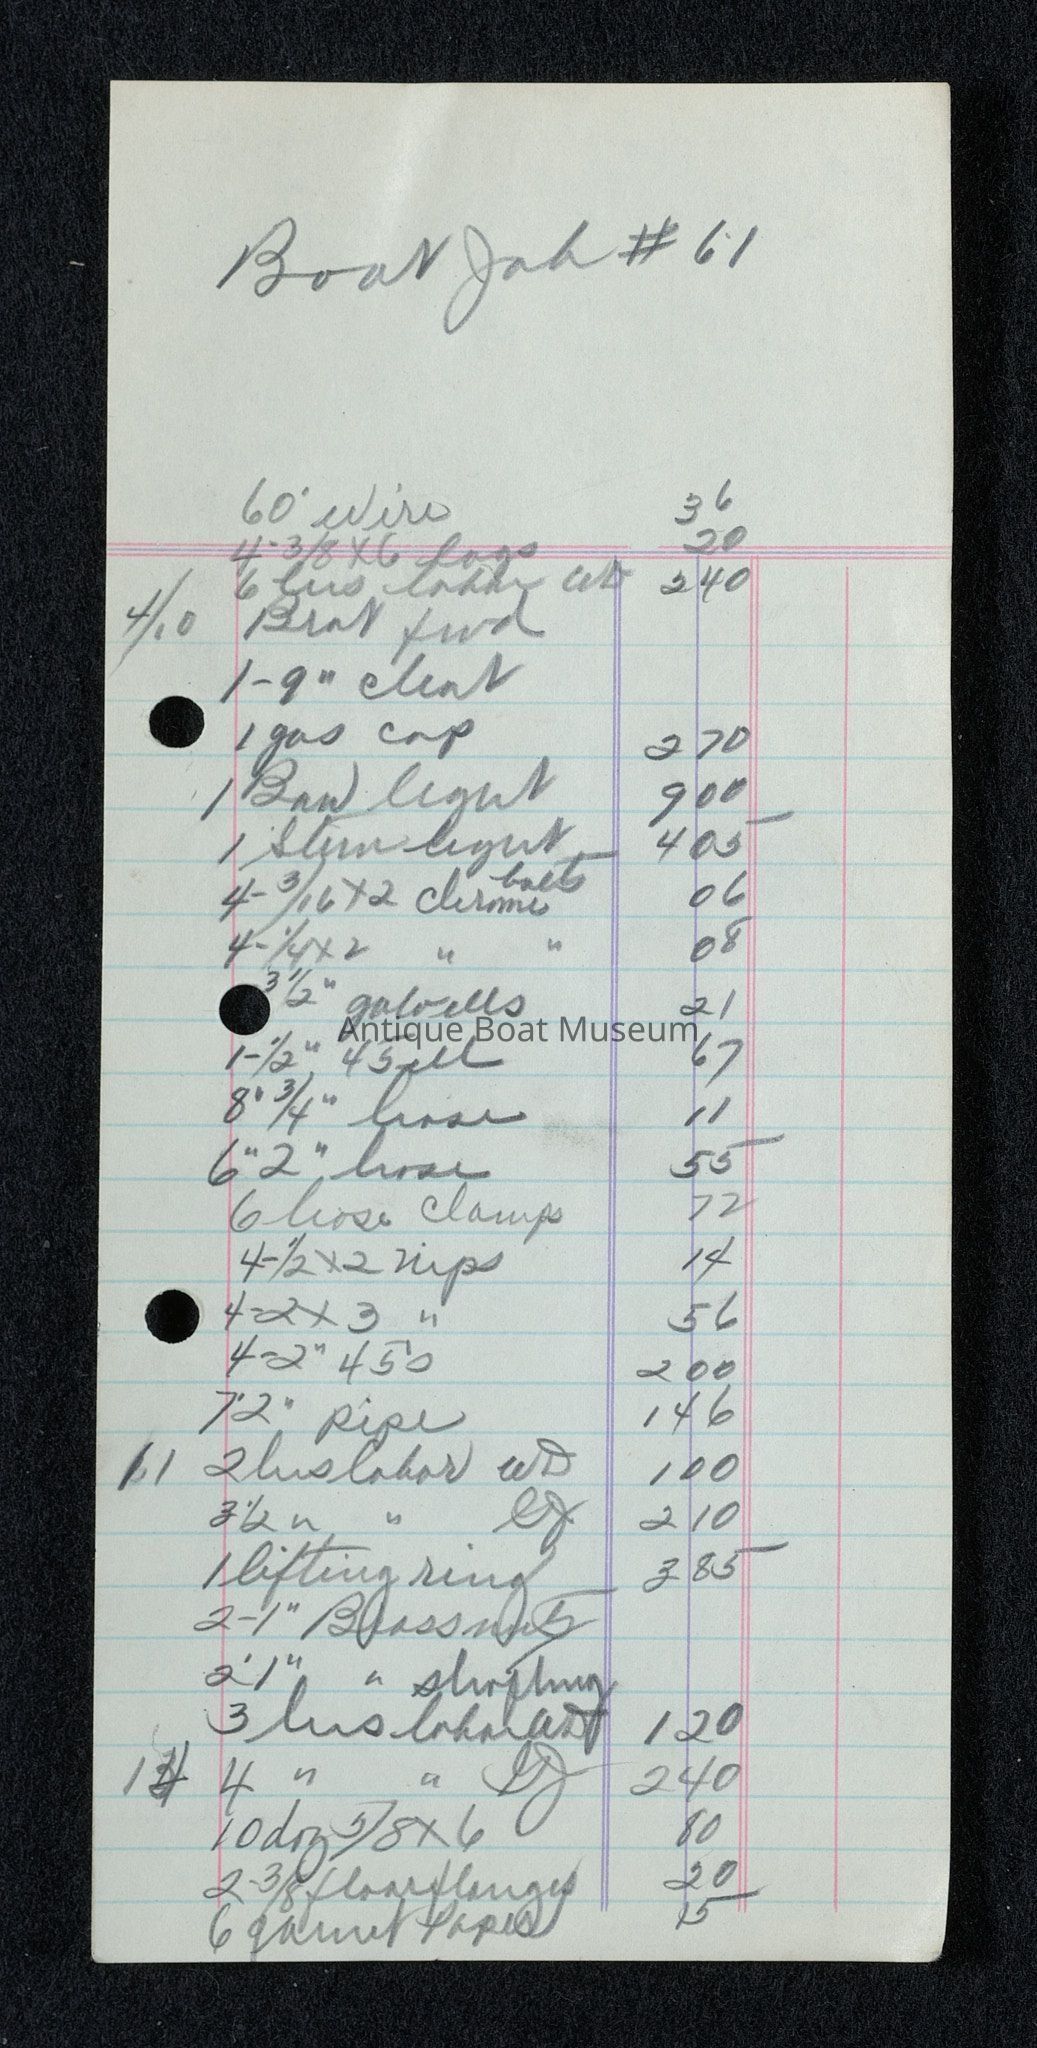 Boat Job # 61
60' wire 36
4-3/8 x 6 lags 20
6 hrs labor WD 240
4/10 Brot fwd
1-9" cleat
1 gas cap 270
1 Bow light 900
1 Stern light 405
4-3/16 x 2 chrome bolts 06
4-1/4 x 2 " " 08
3 1/2" galv ells 21
Antique Boat Museum
1-1/2" 45 ell 67
8" 3/4" hose 11
6" 2" hose 55
6 hose clamps 72
4-1/2 x 2 nips 14
4-2 x 3 " 56
4-2" 45s 200
7' 2" pipe 146
11 2 hrs labor WD 100
3 1/2 " " 210
1 lifting ring 385
2-1" Brass nuts
2' 1" " shafting
3 hrs labor WD 120
4 " " 240
10 doz 5/8 x 6 80
2-3/8 floor flanges 20
6 garnet paper 15